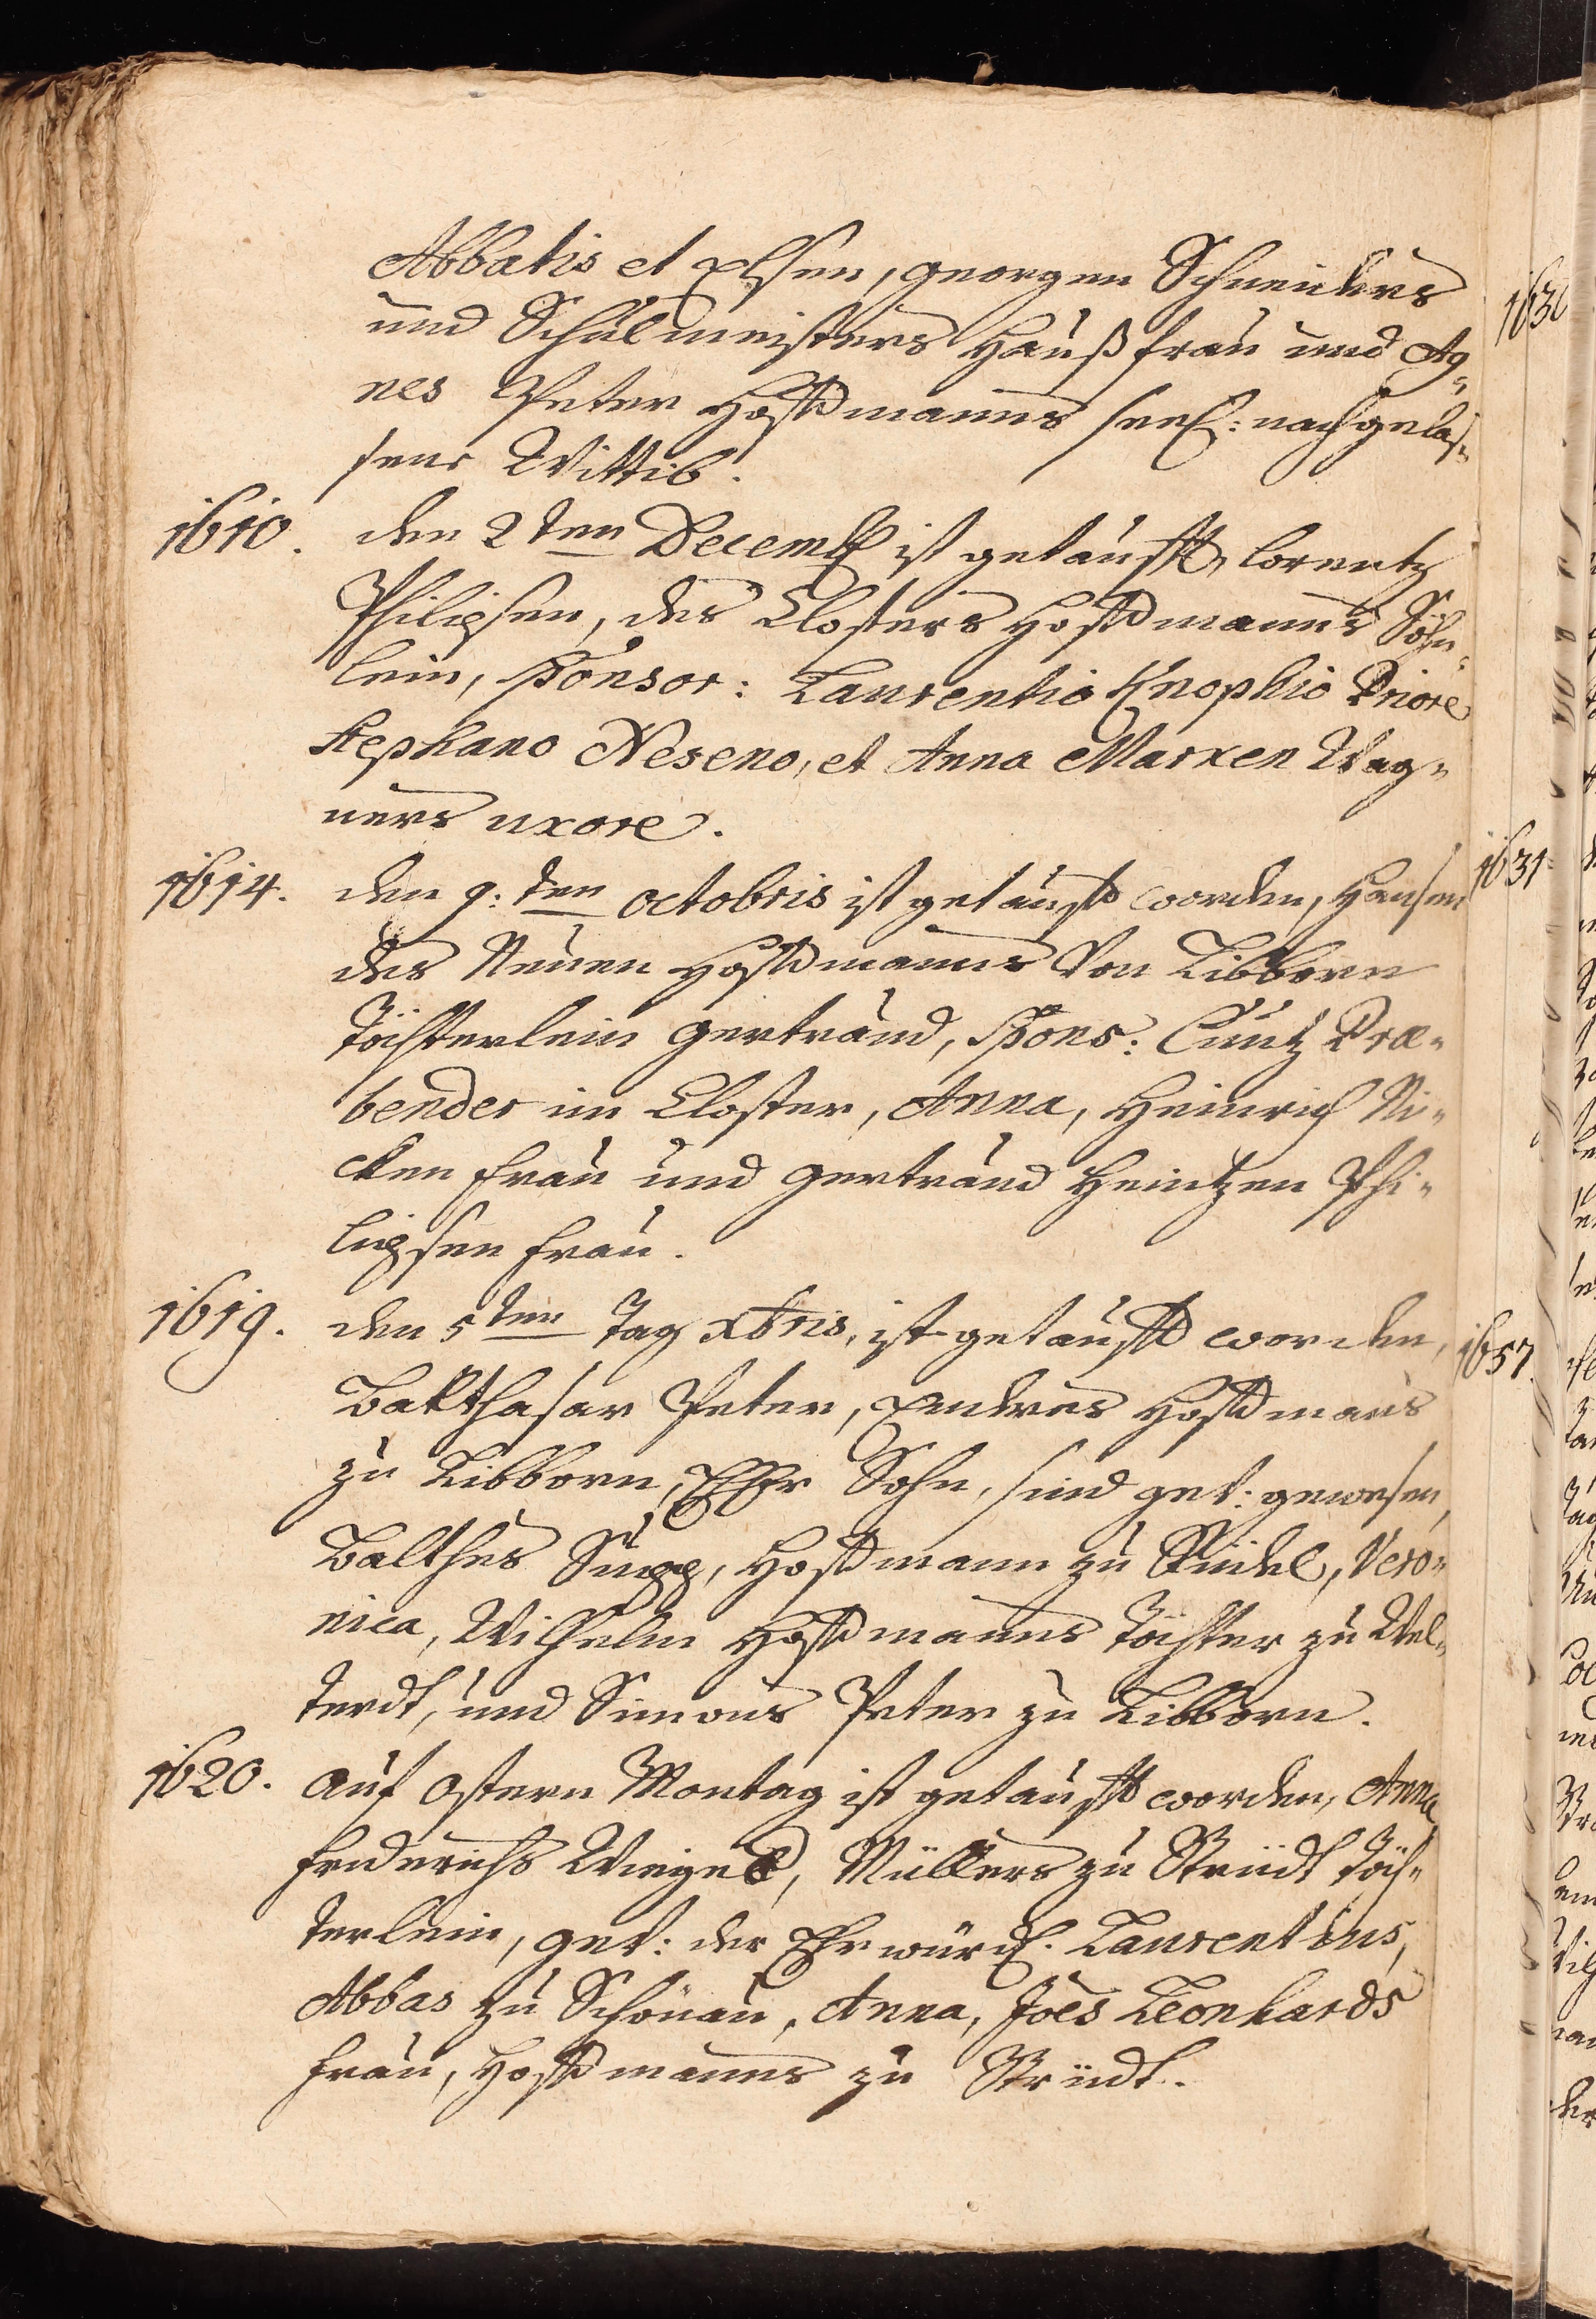 Abbatis et Elsen, georgen Schneiders
und Schulmeisters Haußfrau und Ag-
nes Peter Hoffmanns seel: nachgelas-
sene Wittib.
1610. den 2ten Decemb ist getaufft, lorentz
Philipsen, des Closters Hoffmanns Söhn-
lein, sponsor: Laurentio Knophio Priore
Stephano Neseno, et Anna Marxen Wag-
ners uxore.
1614. den 9:ten octobris ist getaufft worden, Hansen
des Neuen Hoffmanns Von Libborn
Töchterlein gertraud, spons: Cuntz Præ-
bender im Closter, Anna, Heinrich Ni-
cken frau und gertraud Heintzen Phi-
lipsen frau.
1619. den 5ten Tag xbris, ist getaufft worden,
Balthasar Peter, Endres Hoffmans
zu Libborn, Sohn, sind get: gewesen,
Balthes Hoffmann zu Vero-
nica, Wilhelm Hoffmanns Tochter zu Wel-
terdt, und Simons Peter zu Libborn.
1620. auf ostern Montag ist getaufft worden, Anna
friderichs Weygel, Müllers zu Strüdt Töch-
terlein, get: der Ehrwürd. Laurentius,
Abbas zu Schönau, Anna, Joes Leonhards
frau, Hoffmanns zu Strüdt.
1631
1657.